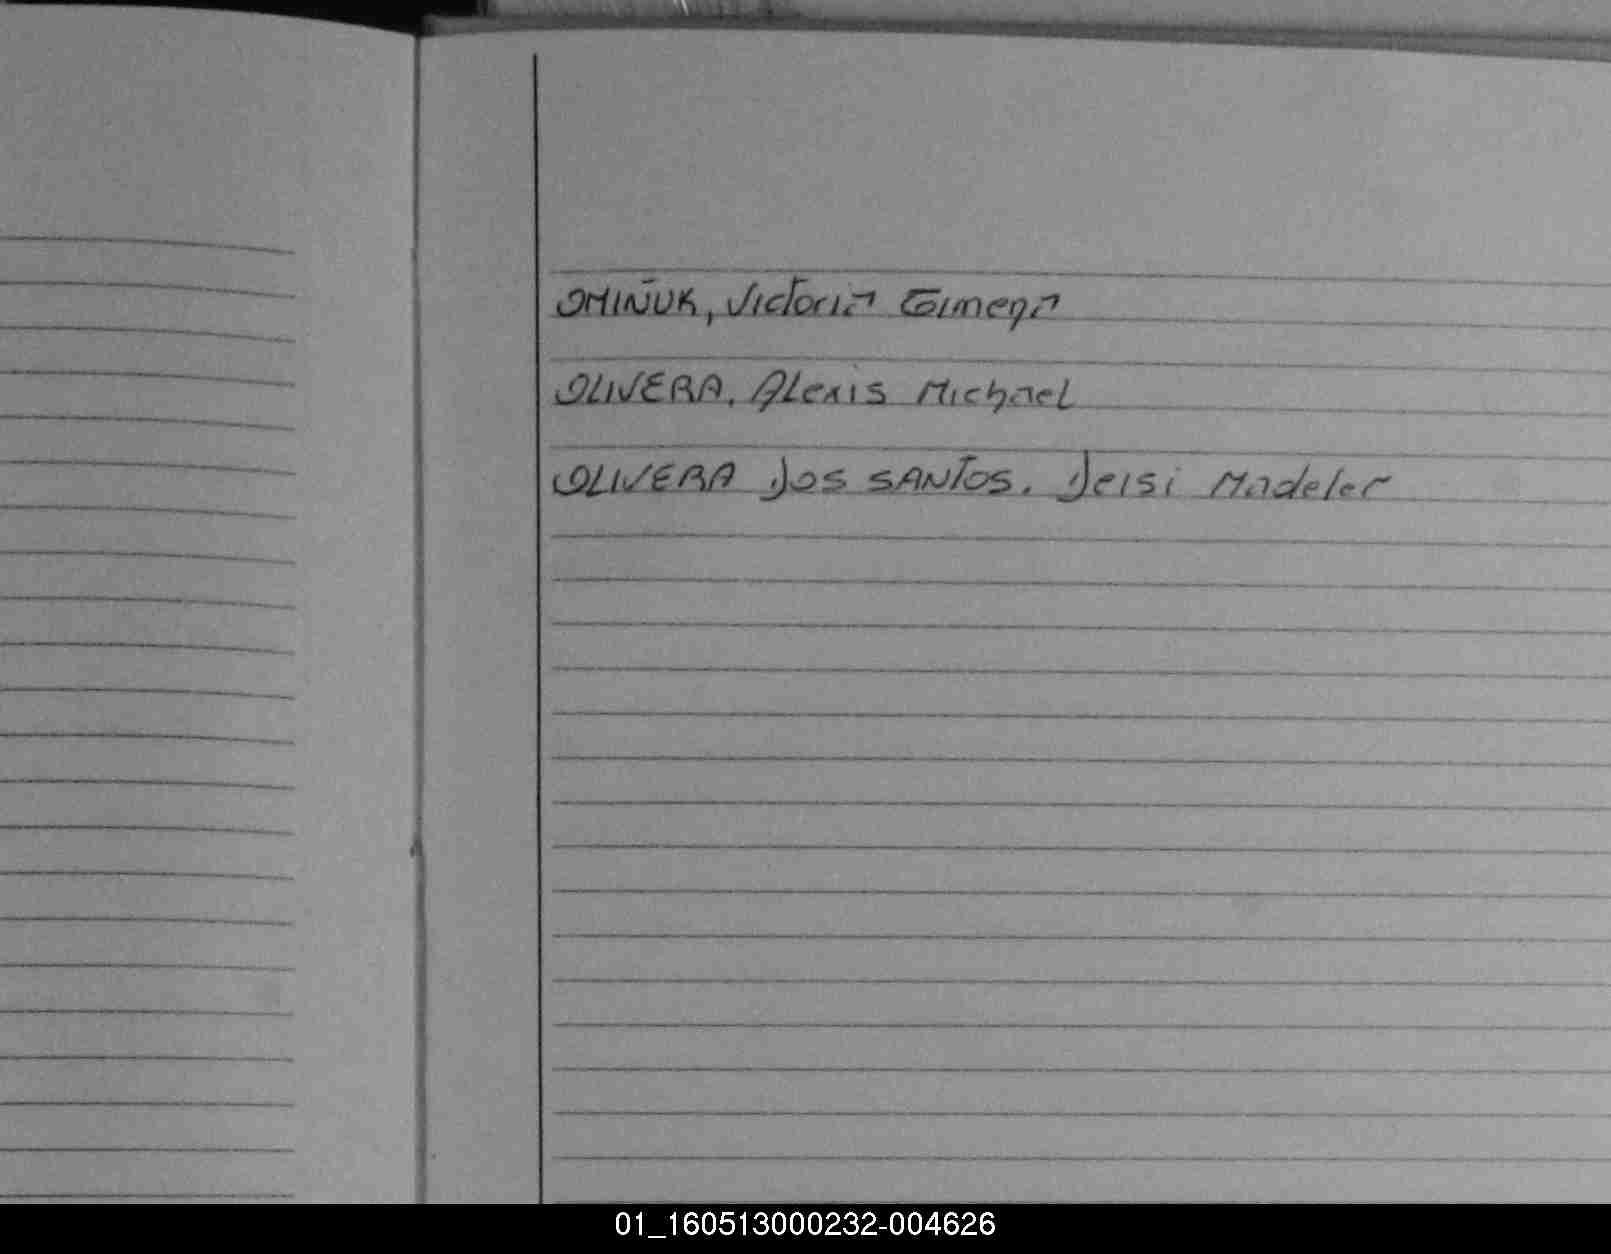 OMIÑUK, Victoria Gimena
OLIVERA, Alexis Michael
OLIVERA DOS SANTOS. Deisi Madeler
01_160513000232-004626